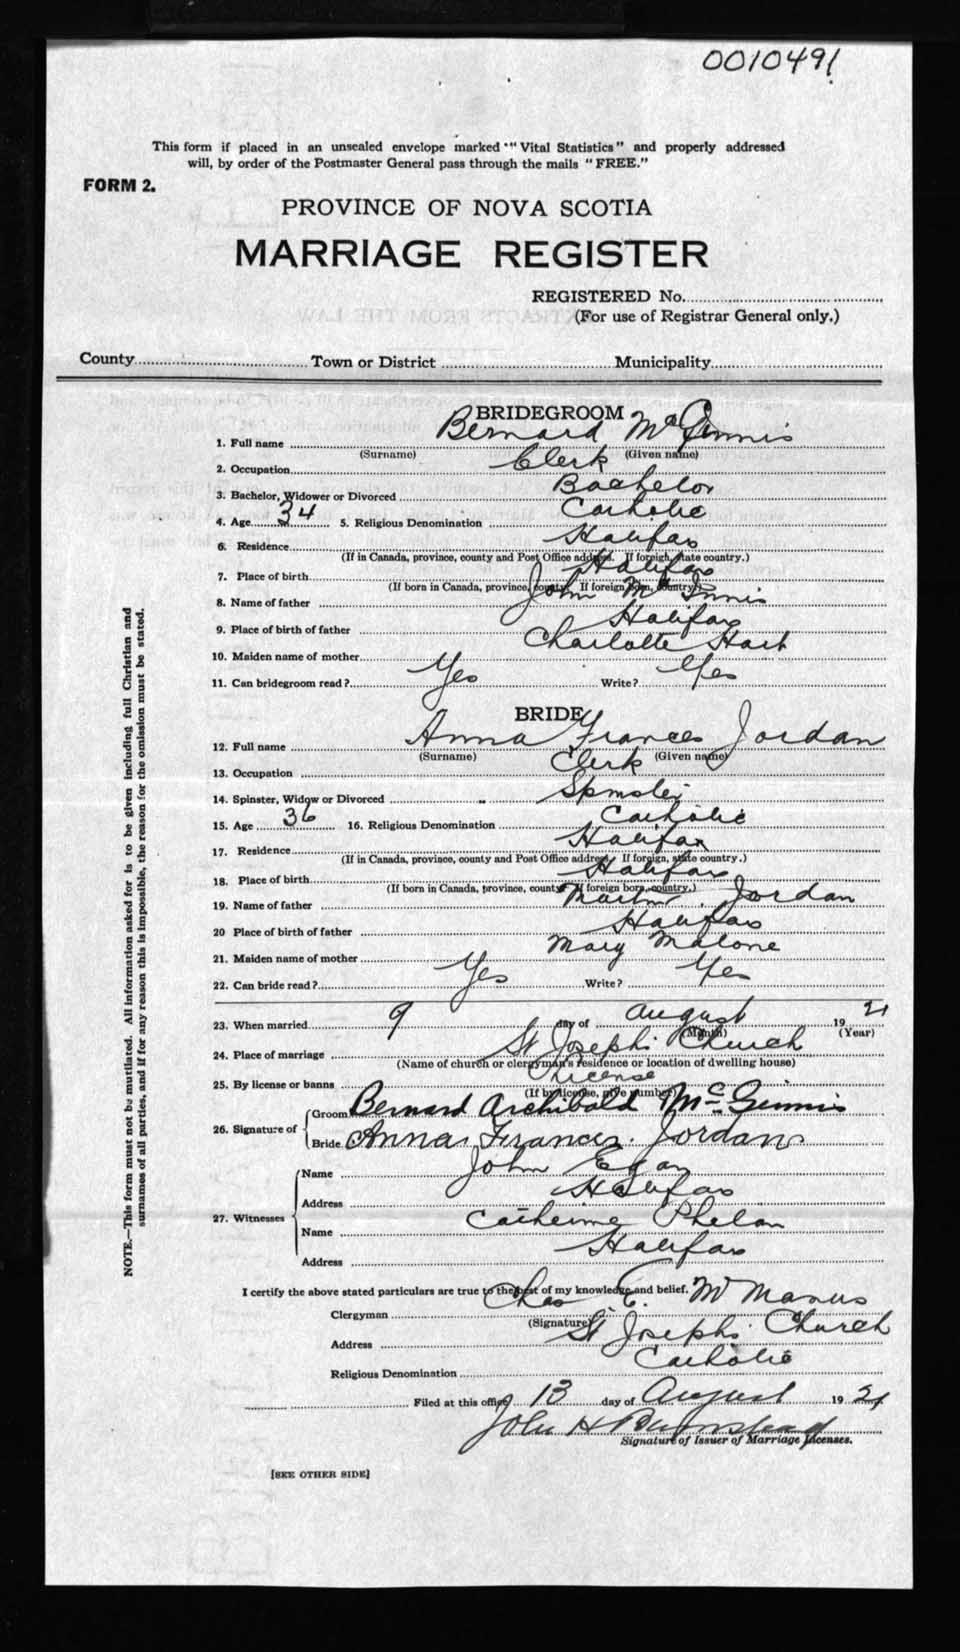 0010491
This form if placed in an unsealed envelope marked "Vital Statistics" and properly addressed
will, by order of the Postmaster General pass through the mails "FREE."
FORM 2.
PROVINCE OF NOVA SCOTIA
MARRIAGE REGISTER
REGISTERED No.
(For use of Registrar General only.)
County Town or District Municipality
BRIDEGROOM
1. Full name Bernard McGinnis
(Surname) (Given name)
2. Occupation Clerk
3. Bachelor, Widower or Divorced Bachelor
4. Age 34 5. Religious Denomination Catholic
6. Residence Halifax
(If in Canada, province, county and Post Office address. If foreign, state country.)
7. Place of birth Halifax
(If born in Canada, province, county. If foreign born, country.)
8. Name of father John McInnis
9. Place of birth of father Halifax
10. Maiden name of mother Charlotte Hart
11. Can bridegroom read? Yes Write? Yes
BRIDE
12. Full name Anna Frances Jordan
(Surname) (Given name)
13. Occupation Clerk
14. Spinster, Widow or Divorced Spinster
15. Age 36 16. Religious Denomination Catholic
17. Residence Halifax
(If in Canada, province, county and Post Office address. If foreign, state country.)
18. Place of birth Halifax
(If born in Canada, province, county. If foreign born, country.)
19. Name of father Martin Jordan
20 Place of birth of father Halifax
21. Maiden name of mother Mary Malone
22. Can bride read? Yes Write? Yes
23. When married 9 day of August 1921
(Month) (Year)
24. Place of marriage St Josephs Church
(Name of church or clergyman's residence or location of dwelling house)
25. By license or banns License
(If by license, give number)
26. Signature of Groom Bernard Archibald McGinnis
Bride Anna Frances Jordan
27. Witnesses Name John Egan
Address Halifax
Name Catherine Phelan
Address Halifax
I certify the above stated particulars are true to the best of my knowledge and belief.
Clergyman Chas E. McManus
(Signature)
Address St Josephs Church
Religious Denomination Catholic
Filed at this office 13 day of August 1921
John H
Signature of Issuer of Marriage Licenses.
[SEE OTHER SIDE]
NOTE.—This form must not be mutilated. All information asked for is to be given including full Christian and
surnames of all parties, and if for any reason this is impossible, the reason for the omission must be stated.